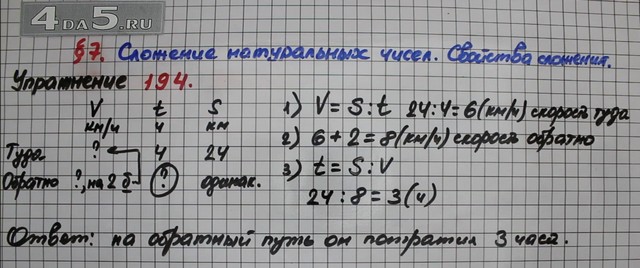 4DA5.RU
§7. Сложение натуральных чисел. Свойства сложения.
Упражнение 194.
V t S
км/ч ч км
Туда ? 4 24
Обратно ?, на 2 б ? одинак.
1) V = S : t 24:4=6(км/ч) скорость туда
2) 6 + 2 = 8 (км/ч) скорость обратно
3) t = S : V
24 : 8 = 3 (ч)
Ответ: на обратный путь он потратил 3 часа.